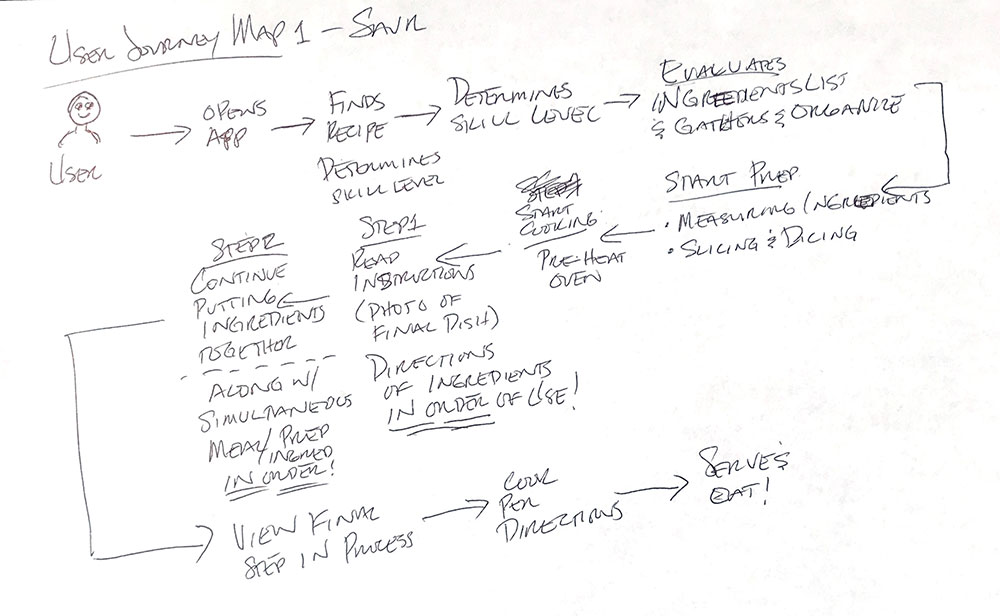 USER JOURNEY MAP 1 – SAVR
USER
OPENS
APP
FINDS
RECIPE
DETERMINES
SKILL LEVEL
DETERMINES
SKILL LEVEL
EVALUATES
INGREDIENTS LIST
& GATHERS & ORGANIZE
START PREP
• MEASURING INGREDIENTS
• SLICING & DICING
START
COOKING
PRE-HEAT
OVEN
STEP 1
READ
INSTRUCTIONS
(PHOTO OF
FINAL DISH)
DIRECTIONS
OF INGREDIENTS
IN ORDER OF USE!
STEP 2
CONTINUE
PUTTING
INGREDIENTS
TOGETHER
ALONG W/
SIMULTANEOUS
MEAL/PREP
INGRED
IN ORDER!
VIEW FINAL
STEP IN PROCESS
COOK
PER
DIRECTIONS
SERVE &
EAT!